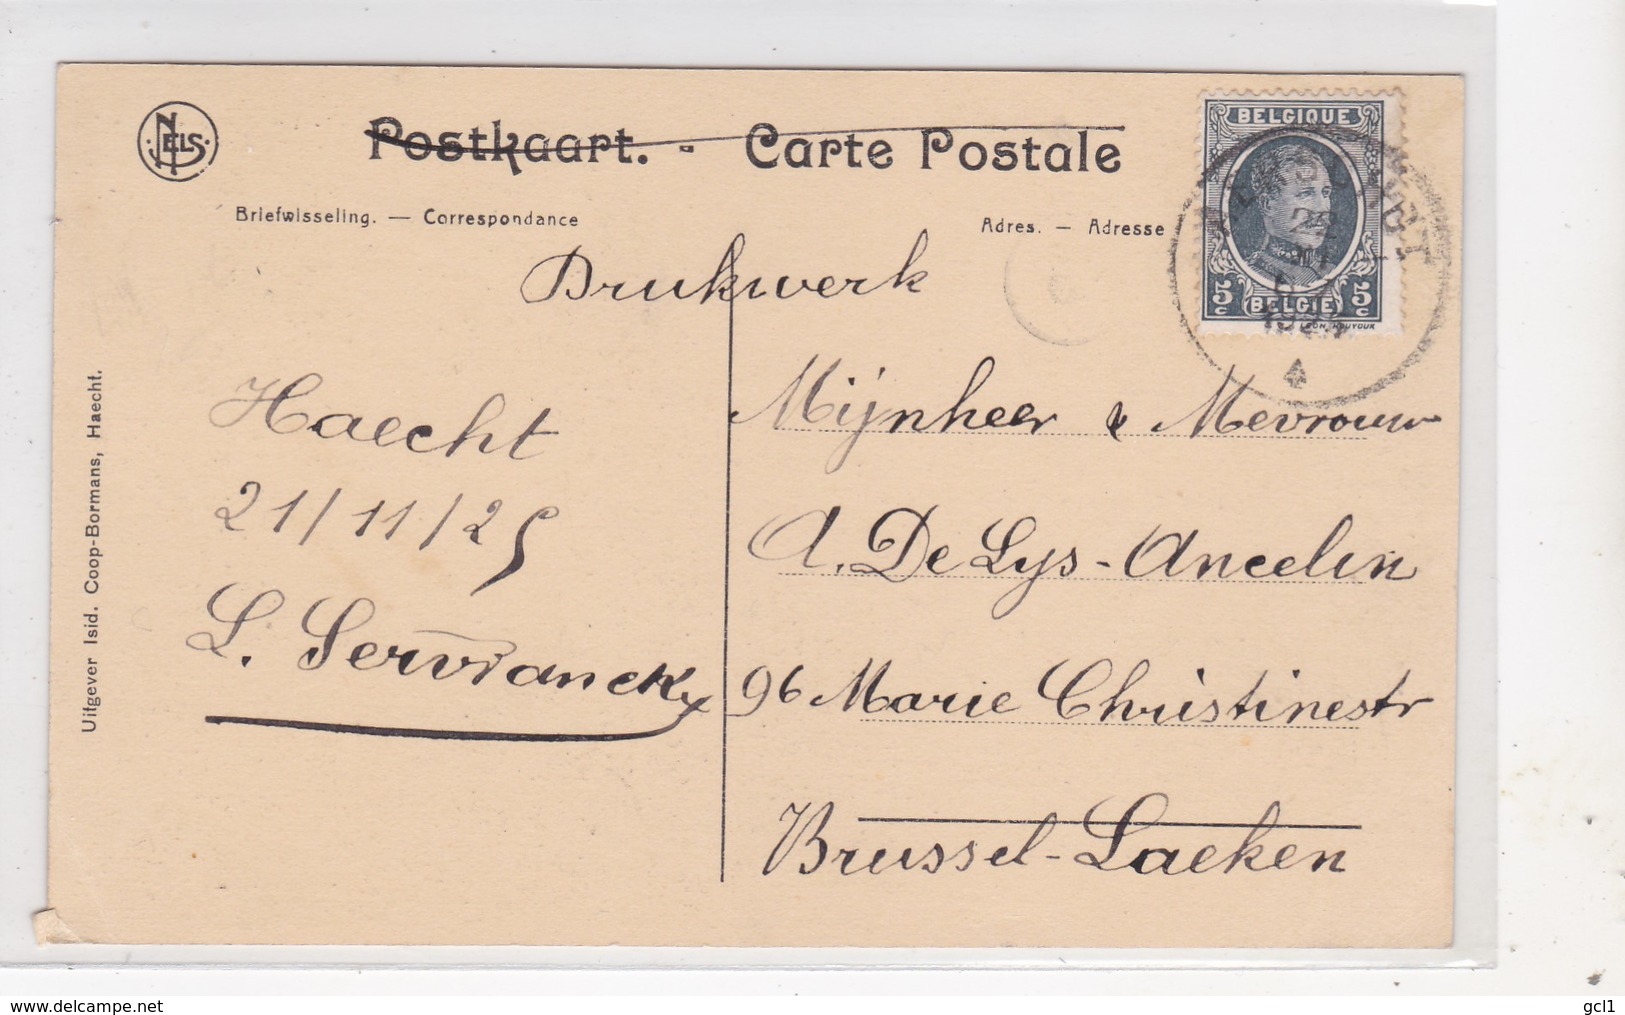 NELS
Postkaart. - Carte Postale
Briefwisseling. — Correspondance
Adres. — Adresse
BELGIQUE
5 c BELGIË 5 c
LÉON HOUYOUX
22
4
Drukwerk
Haecht
21/11/25
L. Servranckx
Mijnheer & Mevrouw
A. De Lys-Ancelin
96 Marie Christinestr
Brussel-Laeken
Uitgever Isid. Coop-Bormans, Haecht.
www.delcampe.net
gcl1